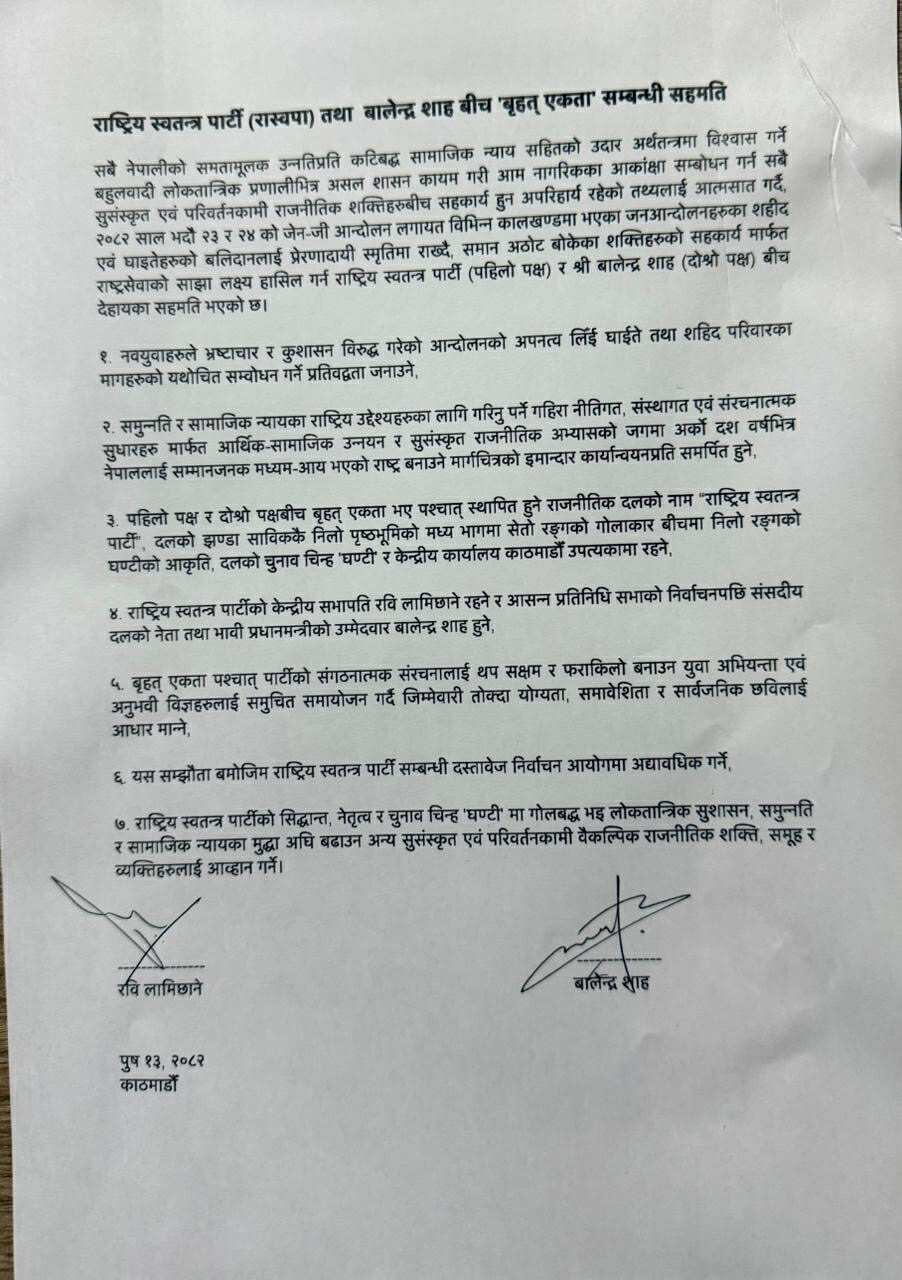 राष्ट्रिय स्वतन्त्र पार्टी (रास्वपा) तथा बालेन्द्र शाह बीच 'बृहत् एकता' सम्बन्धी सहमति
सबै नेपालीको समतामूलक उन्नतिप्रति कटिबद्ध सामाजिक न्याय सहितको उदार अर्थतन्त्रमा विश्वास गर्ने
बहुलवादी लोकतान्त्रिक प्रणालीभित्र असल शासन कायम गरी आम नागरिकका आकांक्षा सम्बोधन गर्न सबै
सुसंस्कृत एवं परिवर्तनकामी राजनीतिक शक्तिहरुबीच सहकार्य हुन अपरिहार्य रहेको तथ्यलाई आत्मसात गर्दै,
२०८२ साल भदौ २३ र २४ को जेन-जी आन्दोलन लगायत विभिन्न कालखण्डमा भएका जनआन्दोलनहरुका शहीद
एवं घाइतेहरुको बलिदानलाई प्रेरणादायी स्मृतिमा राख्दै, समान अठोट बोकेका शक्तिहरुको सहकार्य मार्फत
राष्ट्रसेवाको साझा लक्ष्य हासिल गर्न राष्ट्रिय स्वतन्त्र पार्टी (पहिलो पक्ष) र श्री बालेन्द्र शाह (दोश्रो पक्ष) बीच
देहायका सहमति भएको छ।
१. नवयुवाहरुले भ्रष्टाचार र कुशासन विरुद्ध गरेको आन्दोलनको अपनत्व लिँई घाईते तथा शहिद परिवारका
मागहरुको यथोचित सम्वोधन गर्ने प्रतिवद्वता जनाउने,
२. समुन्नति र सामाजिक न्यायका राष्ट्रिय उद्देश्यहरुका लागि गरिनु पर्ने गहिरा नीतिगत, संस्थागत एवं संरचनात्मक
सुधारहरु मार्फत आर्थिक-सामाजिक उन्नयन र सुसंस्कृत राजनीतिक अभ्यासको जगमा अर्को दश वर्षभित्र
नेपाललाई सम्मानजनक मध्यम-आय भएको राष्ट्र बनाउने मार्गचित्रको इमान्दार कार्यान्वयनप्रति समर्पित हुने,
३. पहिलो पक्ष र दोश्रो पक्षबीच बृहत् एकता भए पश्चात् स्थापित हुने राजनीतिक दलको नाम "राष्ट्रिय स्वतन्त्र
पार्टी", दलको झण्डा साविककै निलो पृष्ठभूमिको मध्य भागमा सेतो रङ्गको गोलाकार बीचमा निलो रङ्गको
घण्टीको आकृति, दलको चुनाव चिन्ह 'घण्टी' र केन्द्रीय कार्यालय काठमाडौँ उपत्यकामा रहने,
४. राष्ट्रिय स्वतन्त्र पार्टीको केन्द्रीय सभापति रवि लामिछाने रहने र आसन्न प्रतिनिधि सभाको निर्वाचनपछि संसदीय
दलको नेता तथा भावी प्रधानमन्त्रीको उम्मेदवार बालेन्द्र शाह हुने,
५. बृहत् एकता पश्चात् पार्टीको संगठनात्मक संरचनालाई थप सक्षम र फराकिलो बनाउन युवा अभियन्ता एवं
अनुभवी विज्ञहरुलाई समुचित समायोजन गर्दै जिम्मेवारी तोक्दा योग्यता, समावेशिता र सार्वजनिक छविलाई
आधार मान्ने,
६. यस सम्झौता बमोजिम राष्ट्रिय स्वतन्त्र पार्टी सम्बन्धी दस्तावेज निर्वाचन आयोगमा अद्यावधिक गर्ने,
७. राष्ट्रिय स्वतन्त्र पार्टीको सिद्धान्त, नेतृत्व र चुनाव चिन्ह 'घण्टी' मा गोलबद्ध भइ लोकतान्त्रिक सुशासन, समुन्नति
र सामाजिक न्यायका मुद्धा अघि बढाउन अन्य सुसंस्कृत एवं परिवर्तनकामी वैकल्पिक राजनीतिक शक्ति, समूह र
व्यक्तिहरुलाई आव्हान गर्ने।
रवि लामिछाने
बालेन्द्र शाह
पुष १३, २०८२
काठमाडौँ